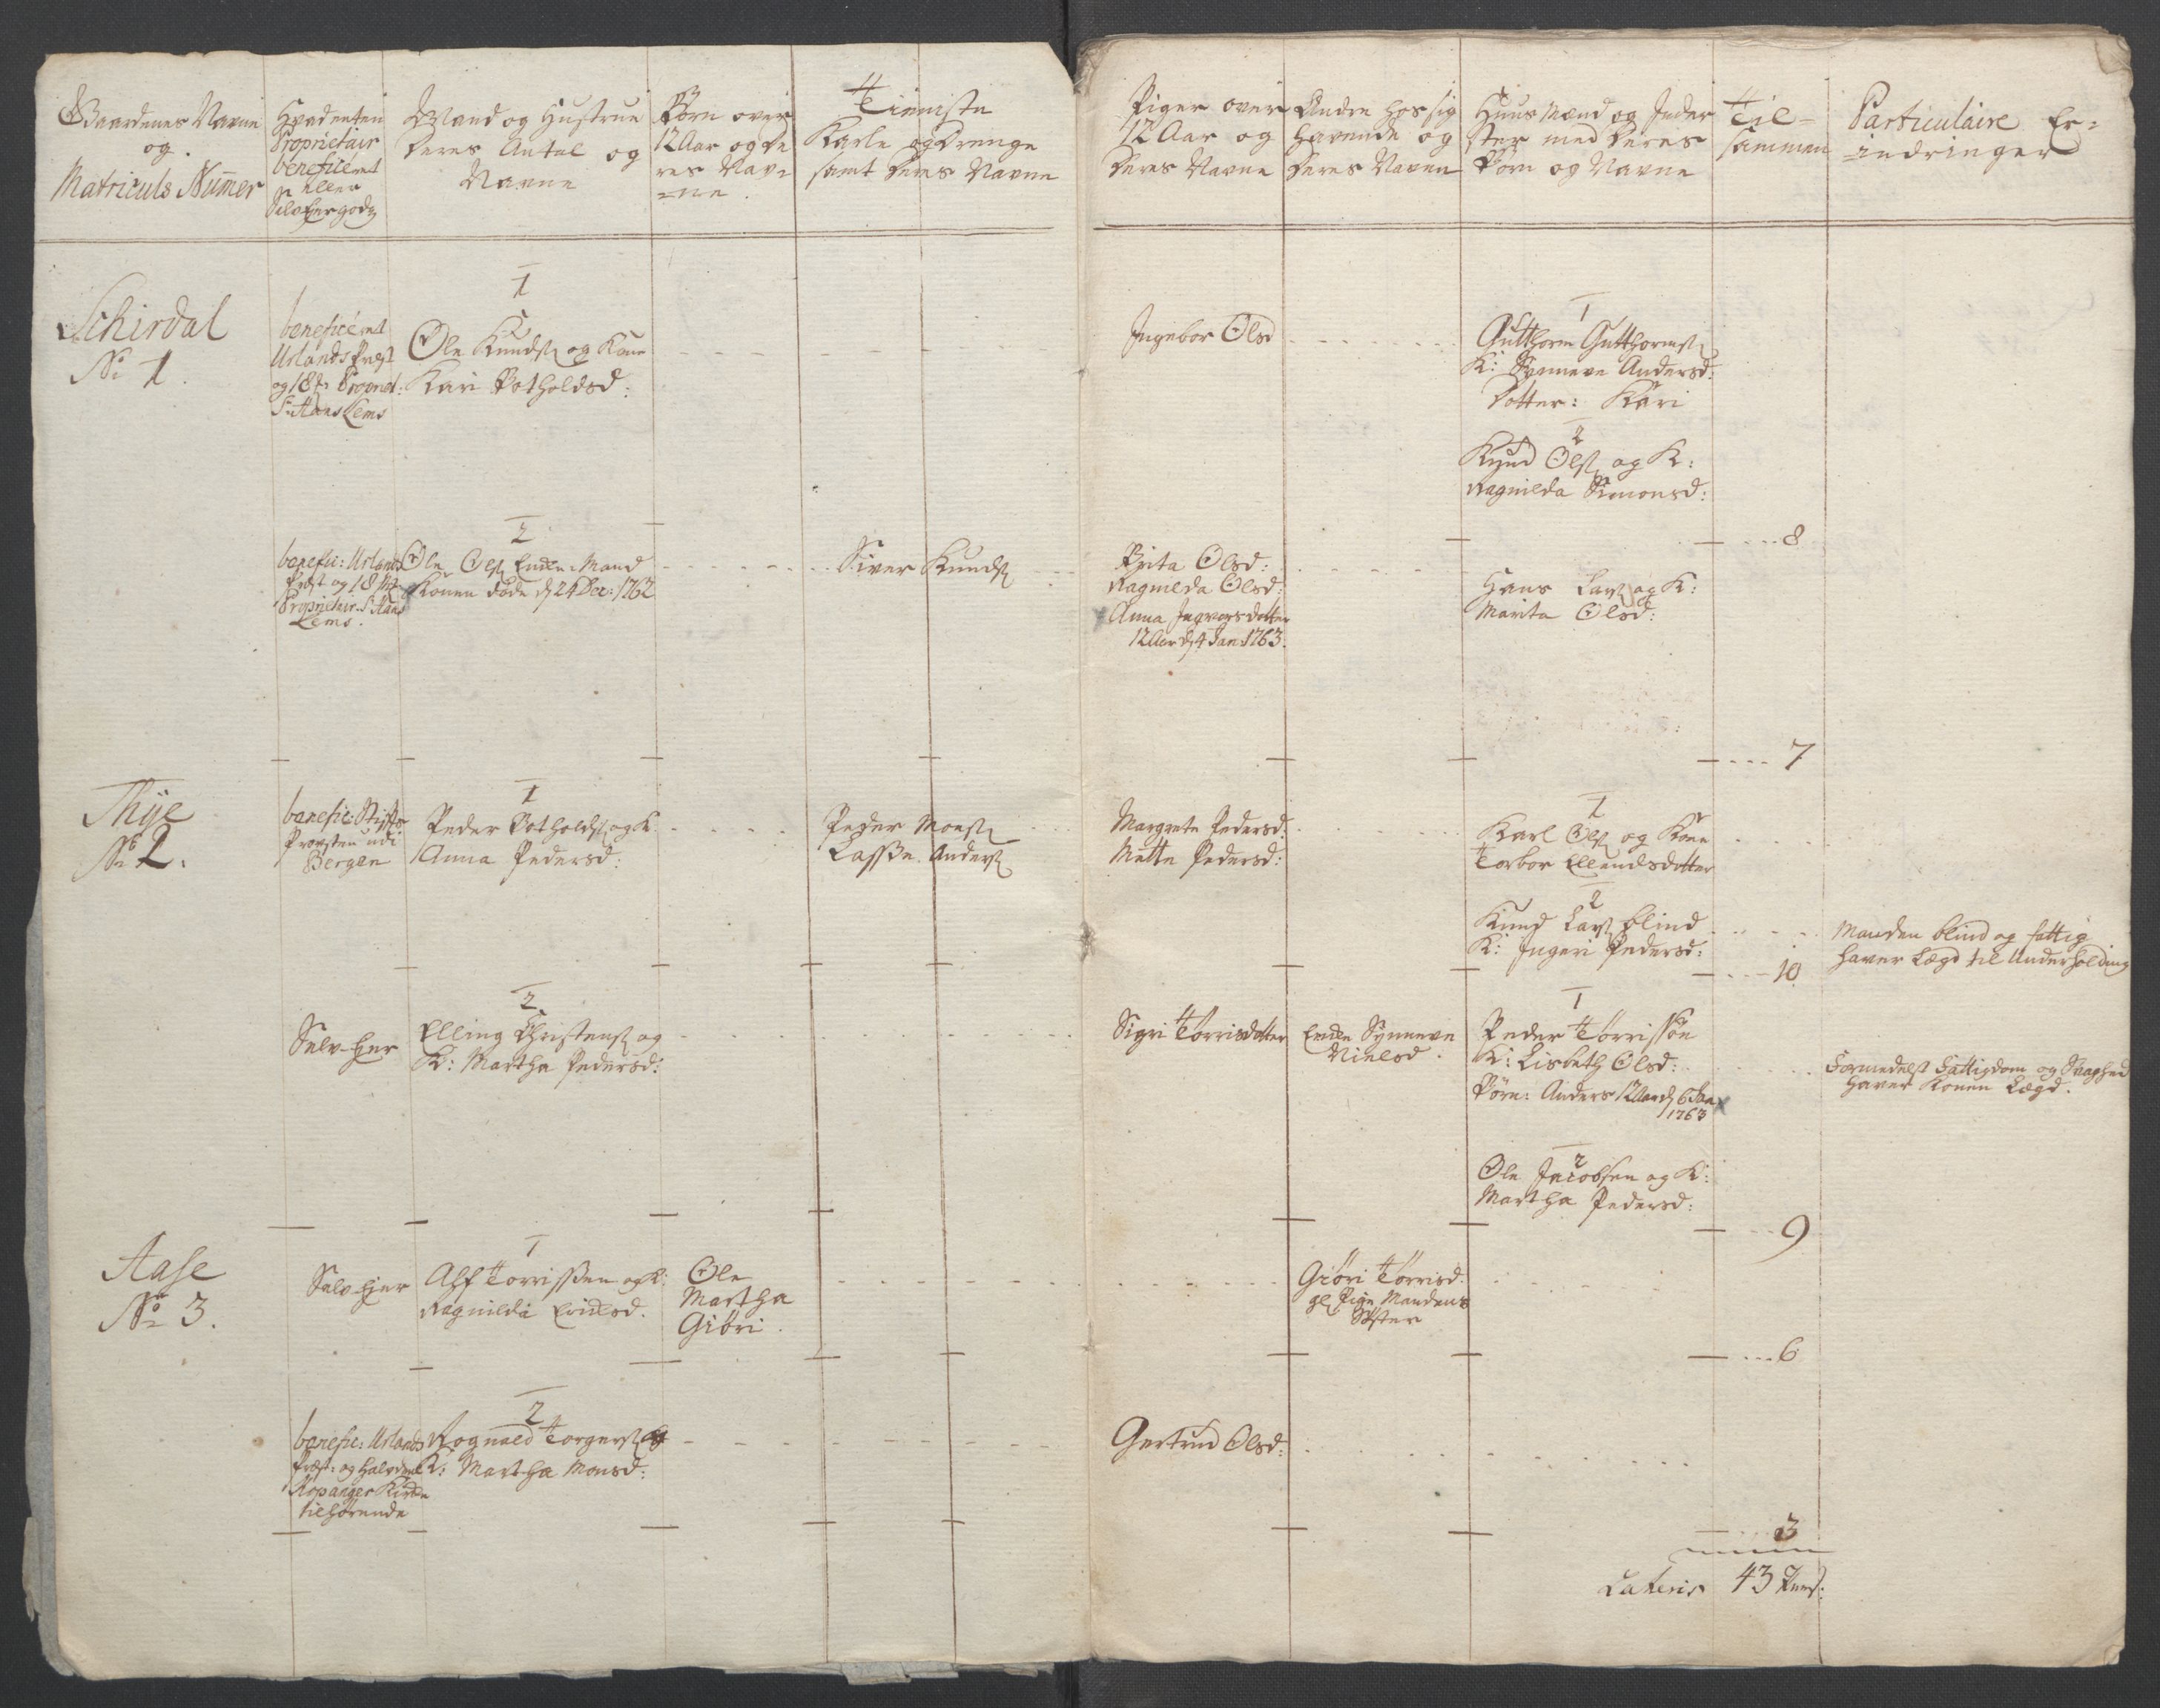 Gaardenes Navne
og
Matriculs Nümer
Hvad enten
Proprietair
beneficeret
eller
Selv Eyer godz
Mand og Hustrue
deres Antal og
Navne
Børn over
12 Aar og De
res Nav=
=ne.
Tieniste
Karle og Drenge
samt deres Navne
Piger over
12 Aar og
deres Navne
Andre hos sig
havende og
deres Navne
Huus Mænd og Inder
ster med deres
Børn og Navne
Til-
sammen
Particulaire Er=
=indringer
Schirdal
No 1.
beneficeret
Urlands Præst
og 18 Propriet:
Sr Hans Lems
1
Ole Knuds og Kone
Kari Botholdsd:
Ingebor Olsd
1
Gutthorm Gutthorms
K: Synneve Andersd:
Dotter: Kari
2
Knud Ols og K:
Ragnilda Simonsd:
8
benefic: Urlands
Præst og 18
Proprietair Sr Hans
Lems.
2
Ole Ols Enke-Mand
Konen døde d 24 Dec: 1762
Siver Knuds
Brita Olsd:
Ragnilda Olsd:
Anna Ingvorsdotter
12 Aar d 4 Jan: 1763.
Hans Lars og K:
Marita Olsd:
7
Thÿe
No 2.
benefic: Stifts
Provsten udi
Bergen
1
Peder Botholds og K
Anna Pedersd:
Peder Mons
Lasse Anders
Margrete Pedersd:
Mette Pedersd:
1
Karl Ols og Kone
Torbor Ellendsdotter
2
Knud Lars blind
K: Ingeri Pedersd:
10
Manden blind og fattig
haver Lægd til Underholding
Selv-Eyer
2
Elling Christens og
K: Martha Pedersd:
Sigri Torrisdotter
Enke Synneve
Nielsd.
1
Peder Torrissøn
K: Lisbeth Olsd:
Børn: Anders 12 Aar d 6 Jan
1763
Formedelst Fattigdom og Svaghed
haver Konen Lægd.
2
Ole Jacobsen og K:
Martha Pedersd:
9
Aase
No 3.
Selv Ejer
1
Alf Torrissen og K:
Ragnilda Endesd.
Ole
Martha
Giøri.
Giøri Tørrisd:
gl Pige Mandens
Søster
6
benefic: Urlands
Præst: og halvdeel
Kopanger Kirke
tilhørende
2
Rognald Torgers og
K: Martha Monsd:
Gertrud Olsd:
3
Lateris 43 Pers: